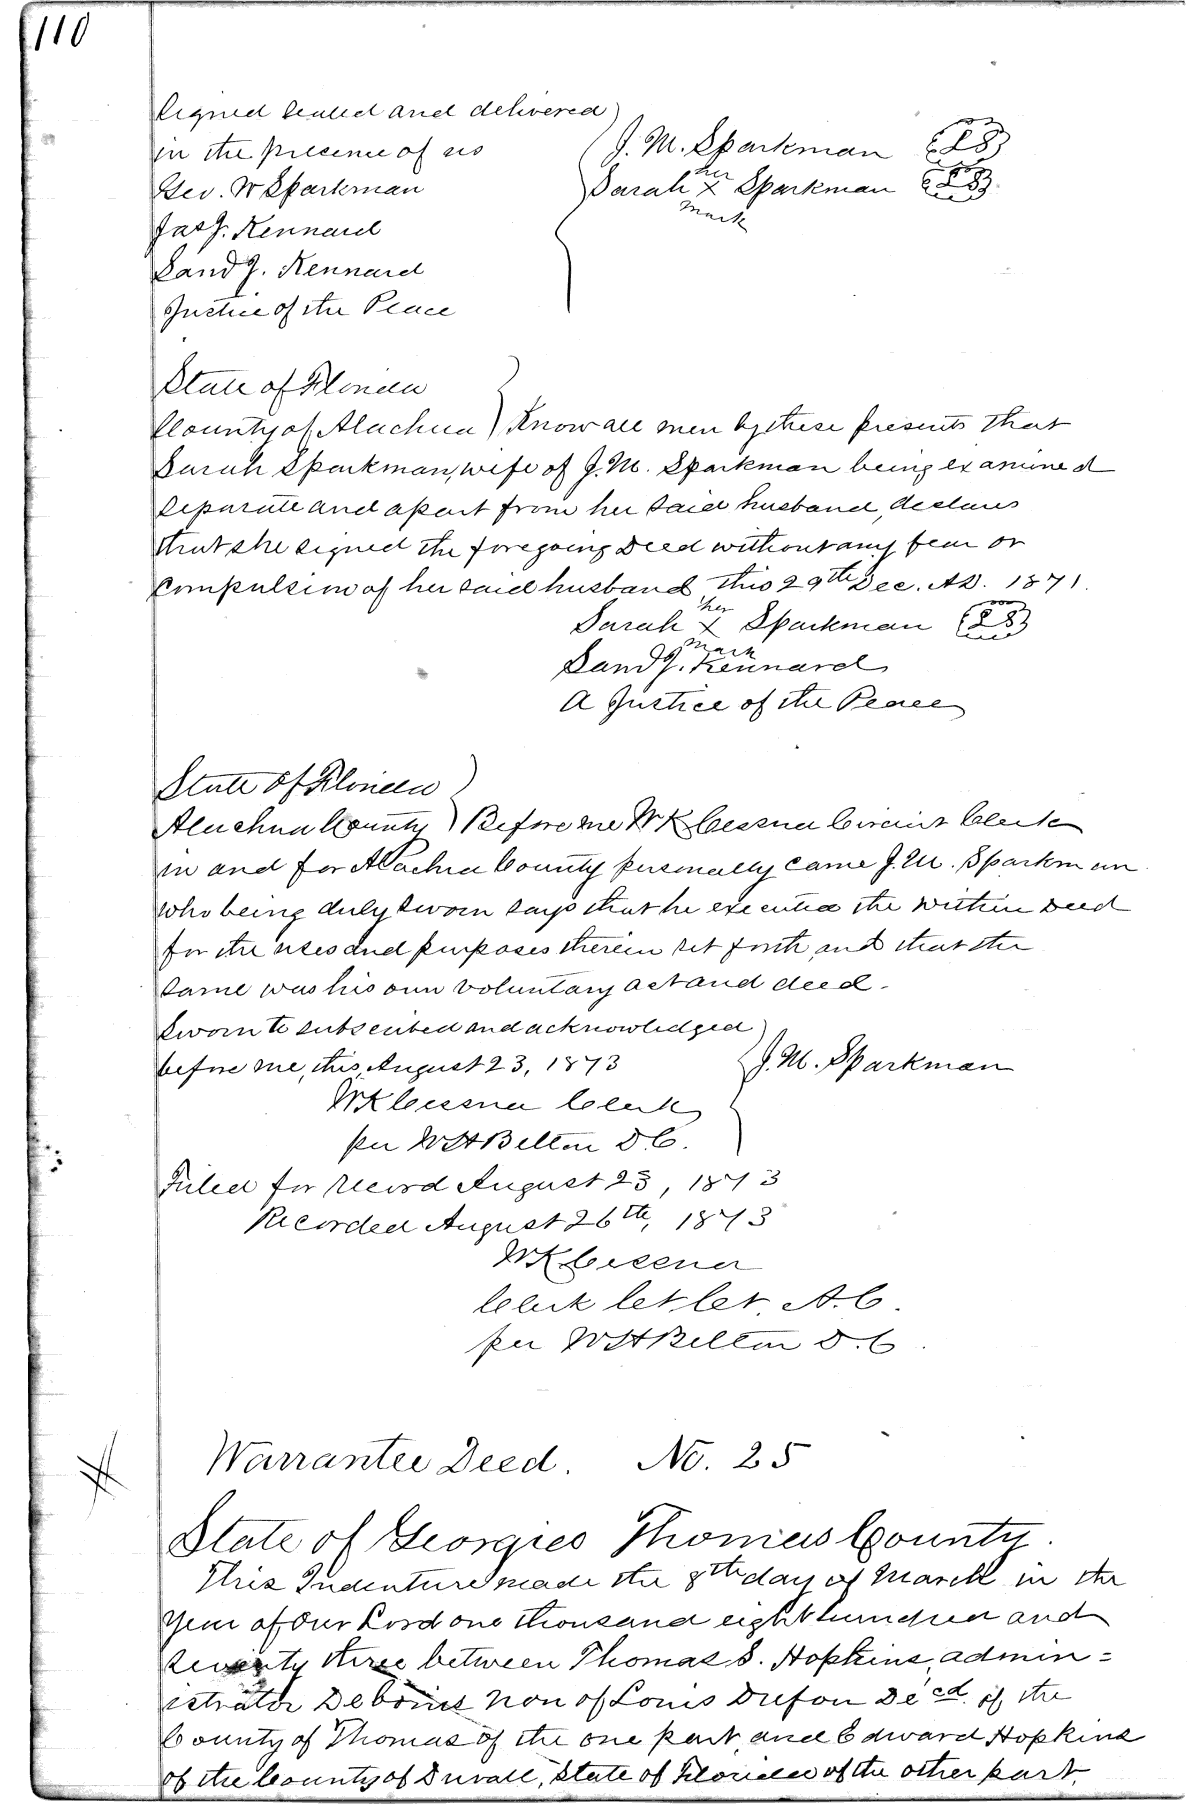 110
Signed sealed and delivered
in the presence of us
Geo. W Sparkman
Jas J. Kennard
Sand J. Kennard
Justice of the Peace
J. M. Sparkman LS
Sarah her X mark Sparkman LS
State of Florida
County of Alachua Know all men by these presents that
Sarah Sparkman, wife of J. M. Sparkman being examined
separate and apart from her said husband, declares
that she signed the foregoing Deed without any fear or
compulsion of her said husband this 29th Dec. AD. 1871.
Sarah her X mark Sparkman LS
Sand J. Kennard
A Justice of the Peace
State of Florida
Alachua County Before me W K Cessna Circuit Clerk
in and for Alachua County personally came J. M. Sparkman
who being duly sworn says that he executed the within Deed
for the uses and purposes therein set forth, and that the
same was his own voluntary act and deed.
Sworn to subscribed and acknowledged
before me, this, August 23, 1873
J. M. Sparkman
W K Cessna Clerk
per W H Belton D. C.
Filed for record August 23, 1873
Recorded August 26th, 1873
W K Cessna
Clerk Ct Ct A. C.
per W H Belton D. C.
Warrantee Deed. No. 25
State of Georgia Thomas County.
This Indenture made the 8th day of March in the
Year of Our Lord one thousand eight hundred and
seventy three between Thomas S. Hopkins, admin=
istrator De bonis non of Louis Dufour Decd. of the
County of Thomas of the one part, and Edward Hopkins
of the County of Duvall, State of Florida of the other part,